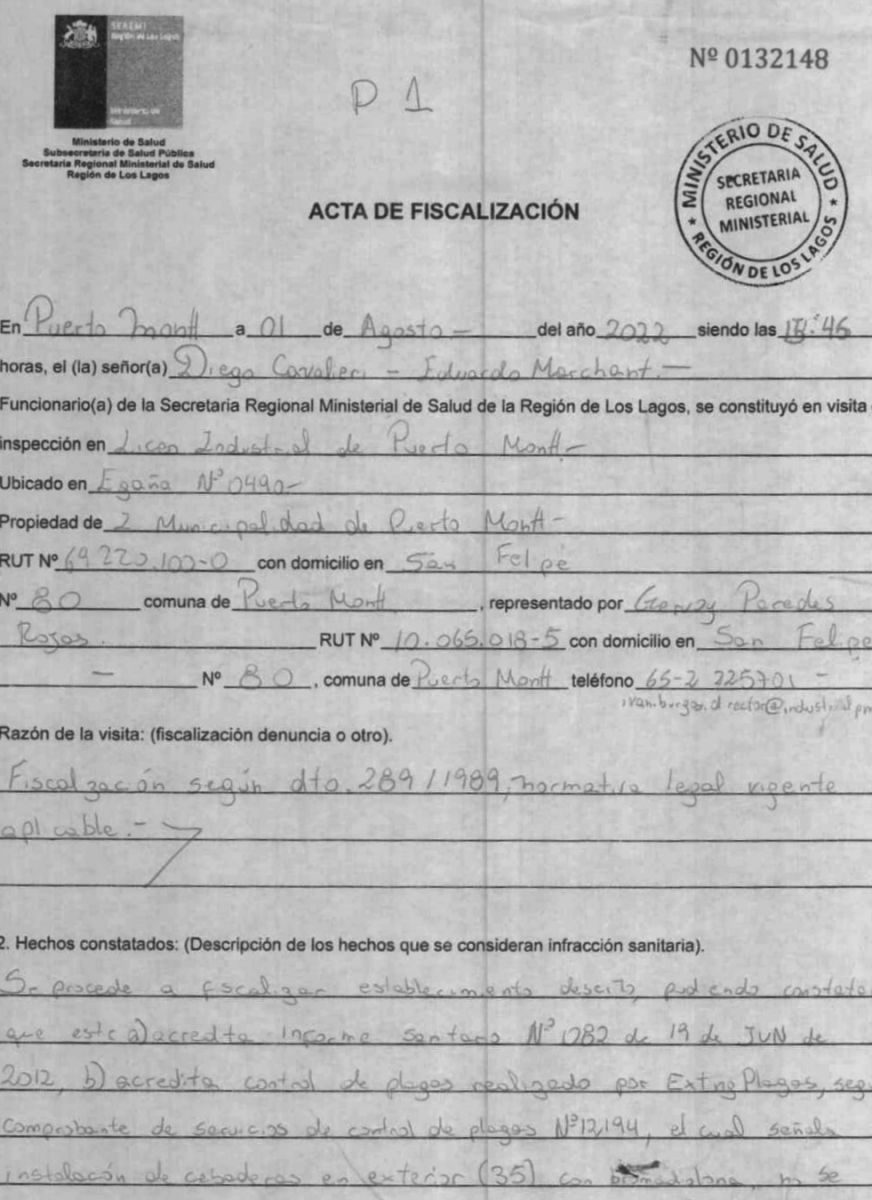 SEREMI
Región de Los Lagos
Ministerio de
Salud
Ministerio de Salud
Subsecretaría de Salud Pública
Secretaría Regional Ministerial de Salud
Región de Los Lagos
P 1
Nº 0132148
MINISTERIO DE SALUD
SECRETARIA
REGIONAL
MINISTERIAL
REGIÓN DE LOS LAGOS
ACTA DE FISCALIZACIÓN
En Puerto Montt a 01 de Agosto - del año 2022 siendo las :46
horas, el (la) señor(a) Diego Cavalieri - Eduardo Marchant.-
Funcionario(a) de la Secretaria Regional Ministerial de Salud de la Región de Los Lagos, se constituyó en visita
inspección en Liceo Industrial de Puerto Montt-
Ubicado en Egaña Nº 0490-
Propiedad de I Municipalidad de Puerto Montt-
RUT Nº 69.220.100-0 con domicilio en San Felipe
Nº 80 comuna de Puerto Montt, representado por Gervoy Paredes
Rojas. RUT Nº 10.065.018-5 con domicilio en San Felipe
- Nº 80, comuna de Puerto Montt teléfono 65-2 225701 -
ivan.burgos.director@industrialpm
Razón de la visita: (fiscalización denuncia o otro).
Fiscalización según dto. 289/1989, normativa legal vigente
aplicable.-
2. Hechos constatados: (Descripción de los hechos que se consideran infracción sanitaria).
Se procede a fiscalizar establecimiento descrito, pudiendo constatar
que este a) acredita Informe sanitario Nº 1282 de 19 de JUN de
2012, b) acredita control de plagas realizado por Exting Plagas, seg
comprobante de servicios de control de plagas Nº 12194, el cual señala
instalación de cebaderas en exterior (35) con bromadiolona, no se